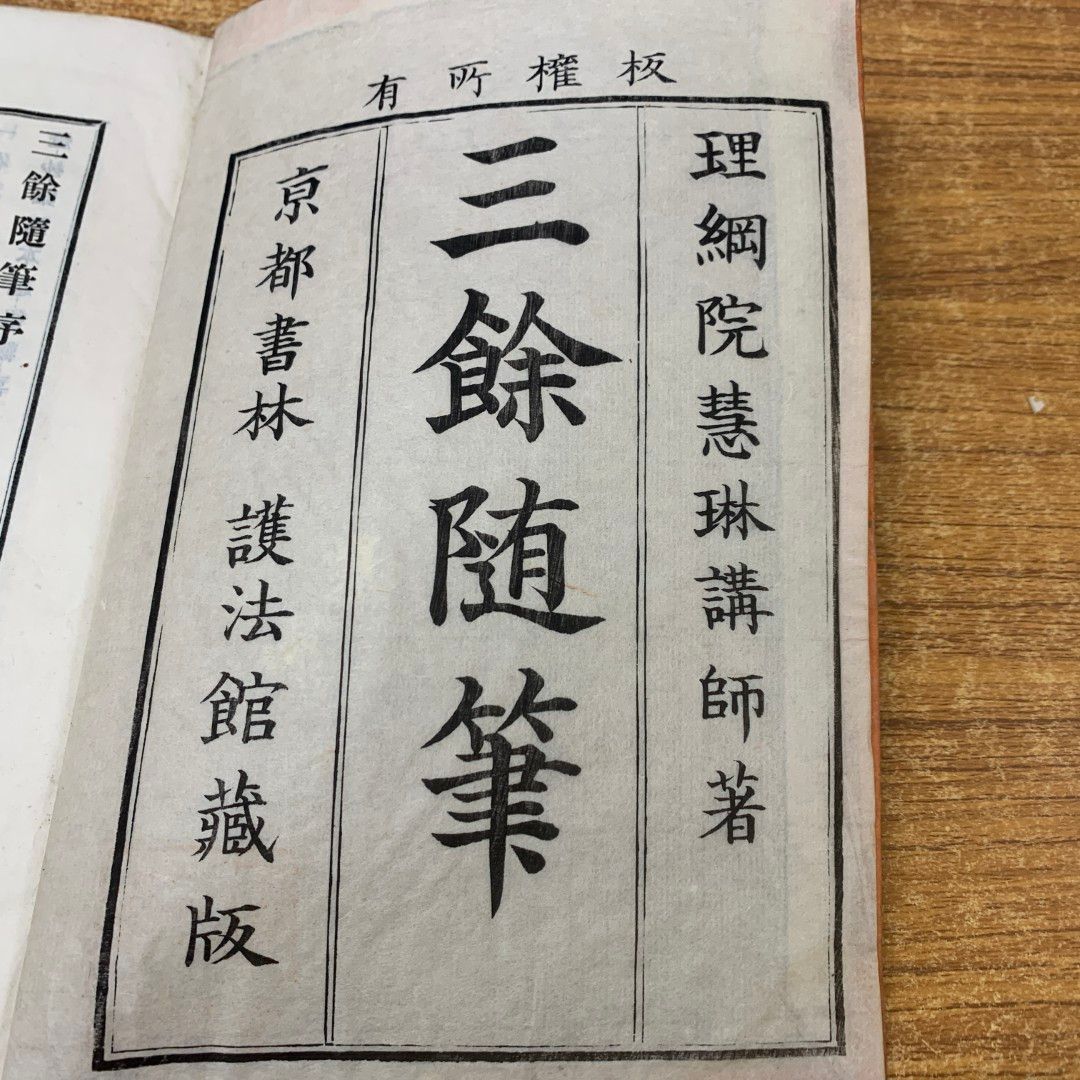 板權所有
理綱院慧琳講師著
三餘随筆
京都書林 護法館藏版
三餘隨筆序